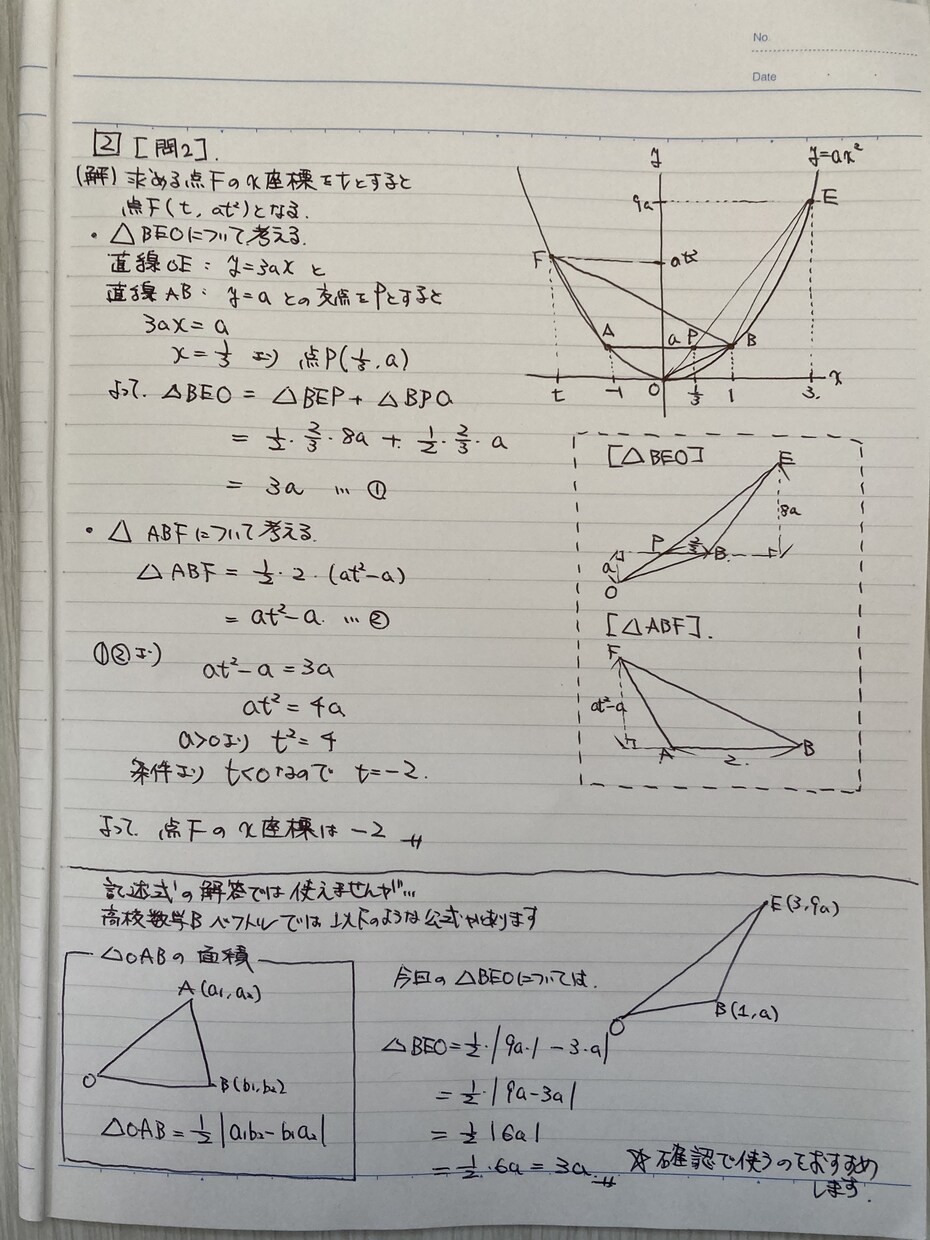 No.
Date
2 [問2].
(解) 求める点Fのx座標をtとすると
点F(t, at²)となる.
・△BEOについて考える.
直線OE: y=3ax と
直線AB: y=a との交点をPとすると
3ax = a
x = 1/3 より 点P(1/3, a)
よって. △BEO = △BEP + △BPO
= 1/2・2/3・8a + 1/2・2/3・a
= 3a … ①
・△ABFについて考える.
△ABF = 1/2・2・(at²-a)
= at²-a. … ②
①②より
at²-a = 3a
at² = 4a
a>0より t²=4
条件より t<0なので t=-2.
よって. 点Fのx座標は -2
y
y=ax²
9a
E
F
at²
A
a
P
B
O
t
-1
1/3
1
3.
x
[△BEO]
E
8a
P
2/3
B
a
O
[△ABF].
F
at²-a
A
2.
B
記述式の解答では使えませんが…
高校数学B ベクトルでは以下のような公式があります
△OABの面積
A(a₁,a₂)
O
B(b₁,b₂)
△OAB = 1/2|a₁b₂-b₁a₂|
今回の△BEOについては.
E(3,9a)
B(1,a)
O
△BEO = 1/2・|9a・1 - 3・a|
= 1/2・|9a-3a|
= 1/2|6a|
= 1/2・6a = 3a
☆確認で使うのをおすすめ
します.